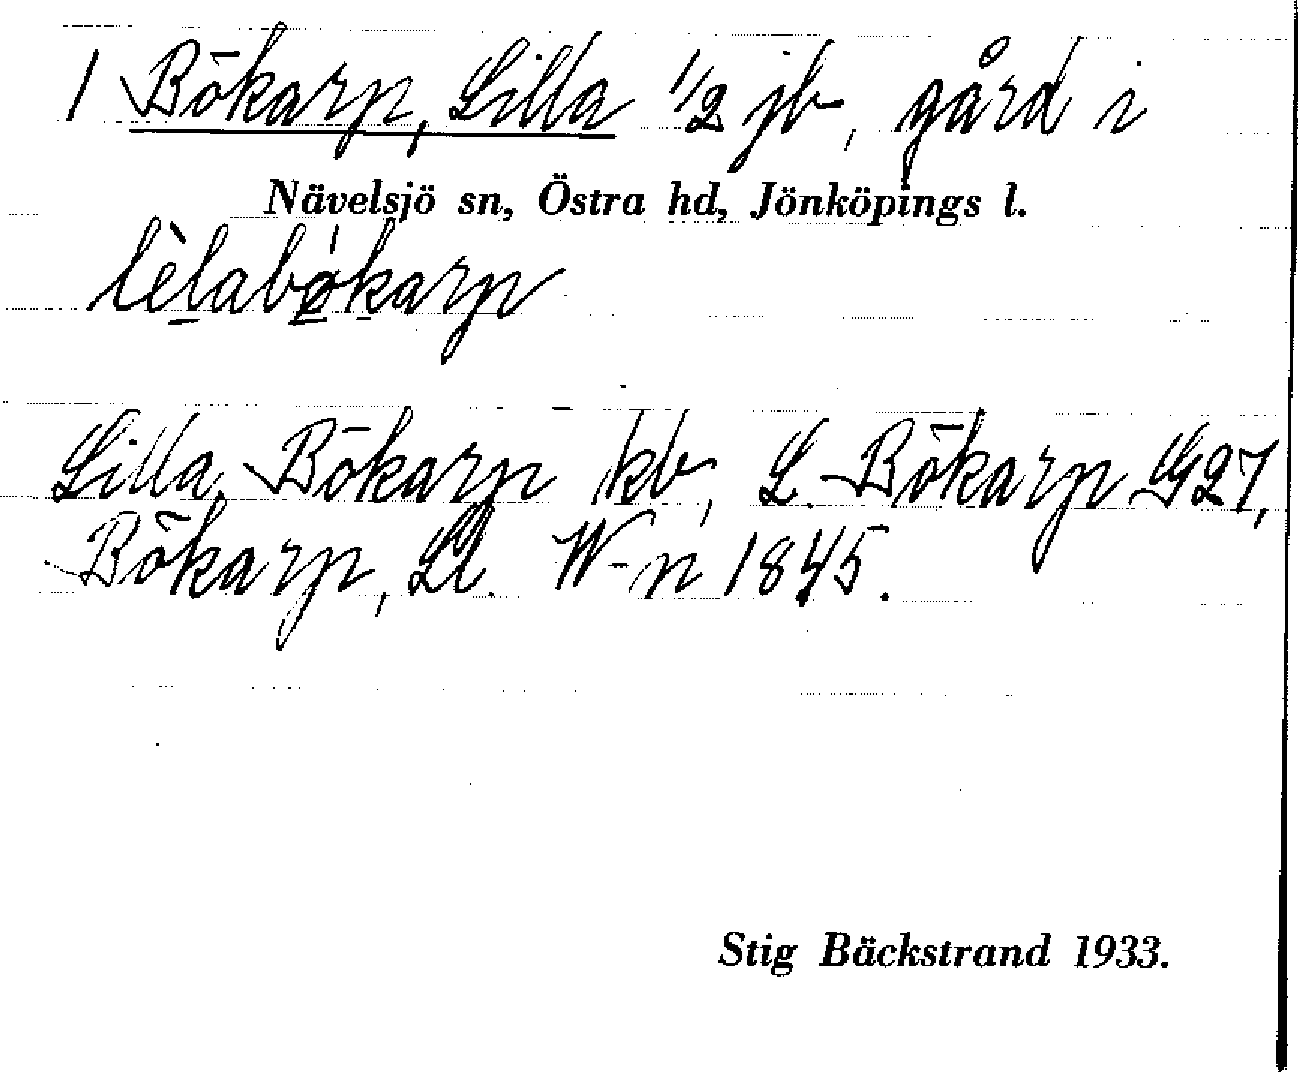 1 Bökarp, Lilla 1/2 jb, gård i
Nävelsjö sn, Östra hd, Jönköpings l.
lèlabø̀karp
Lilla Bökarp kb, L. Bökarp G27,
Bökarp, Ll. W-n 1845.
Stig Bäckstrand 1933.